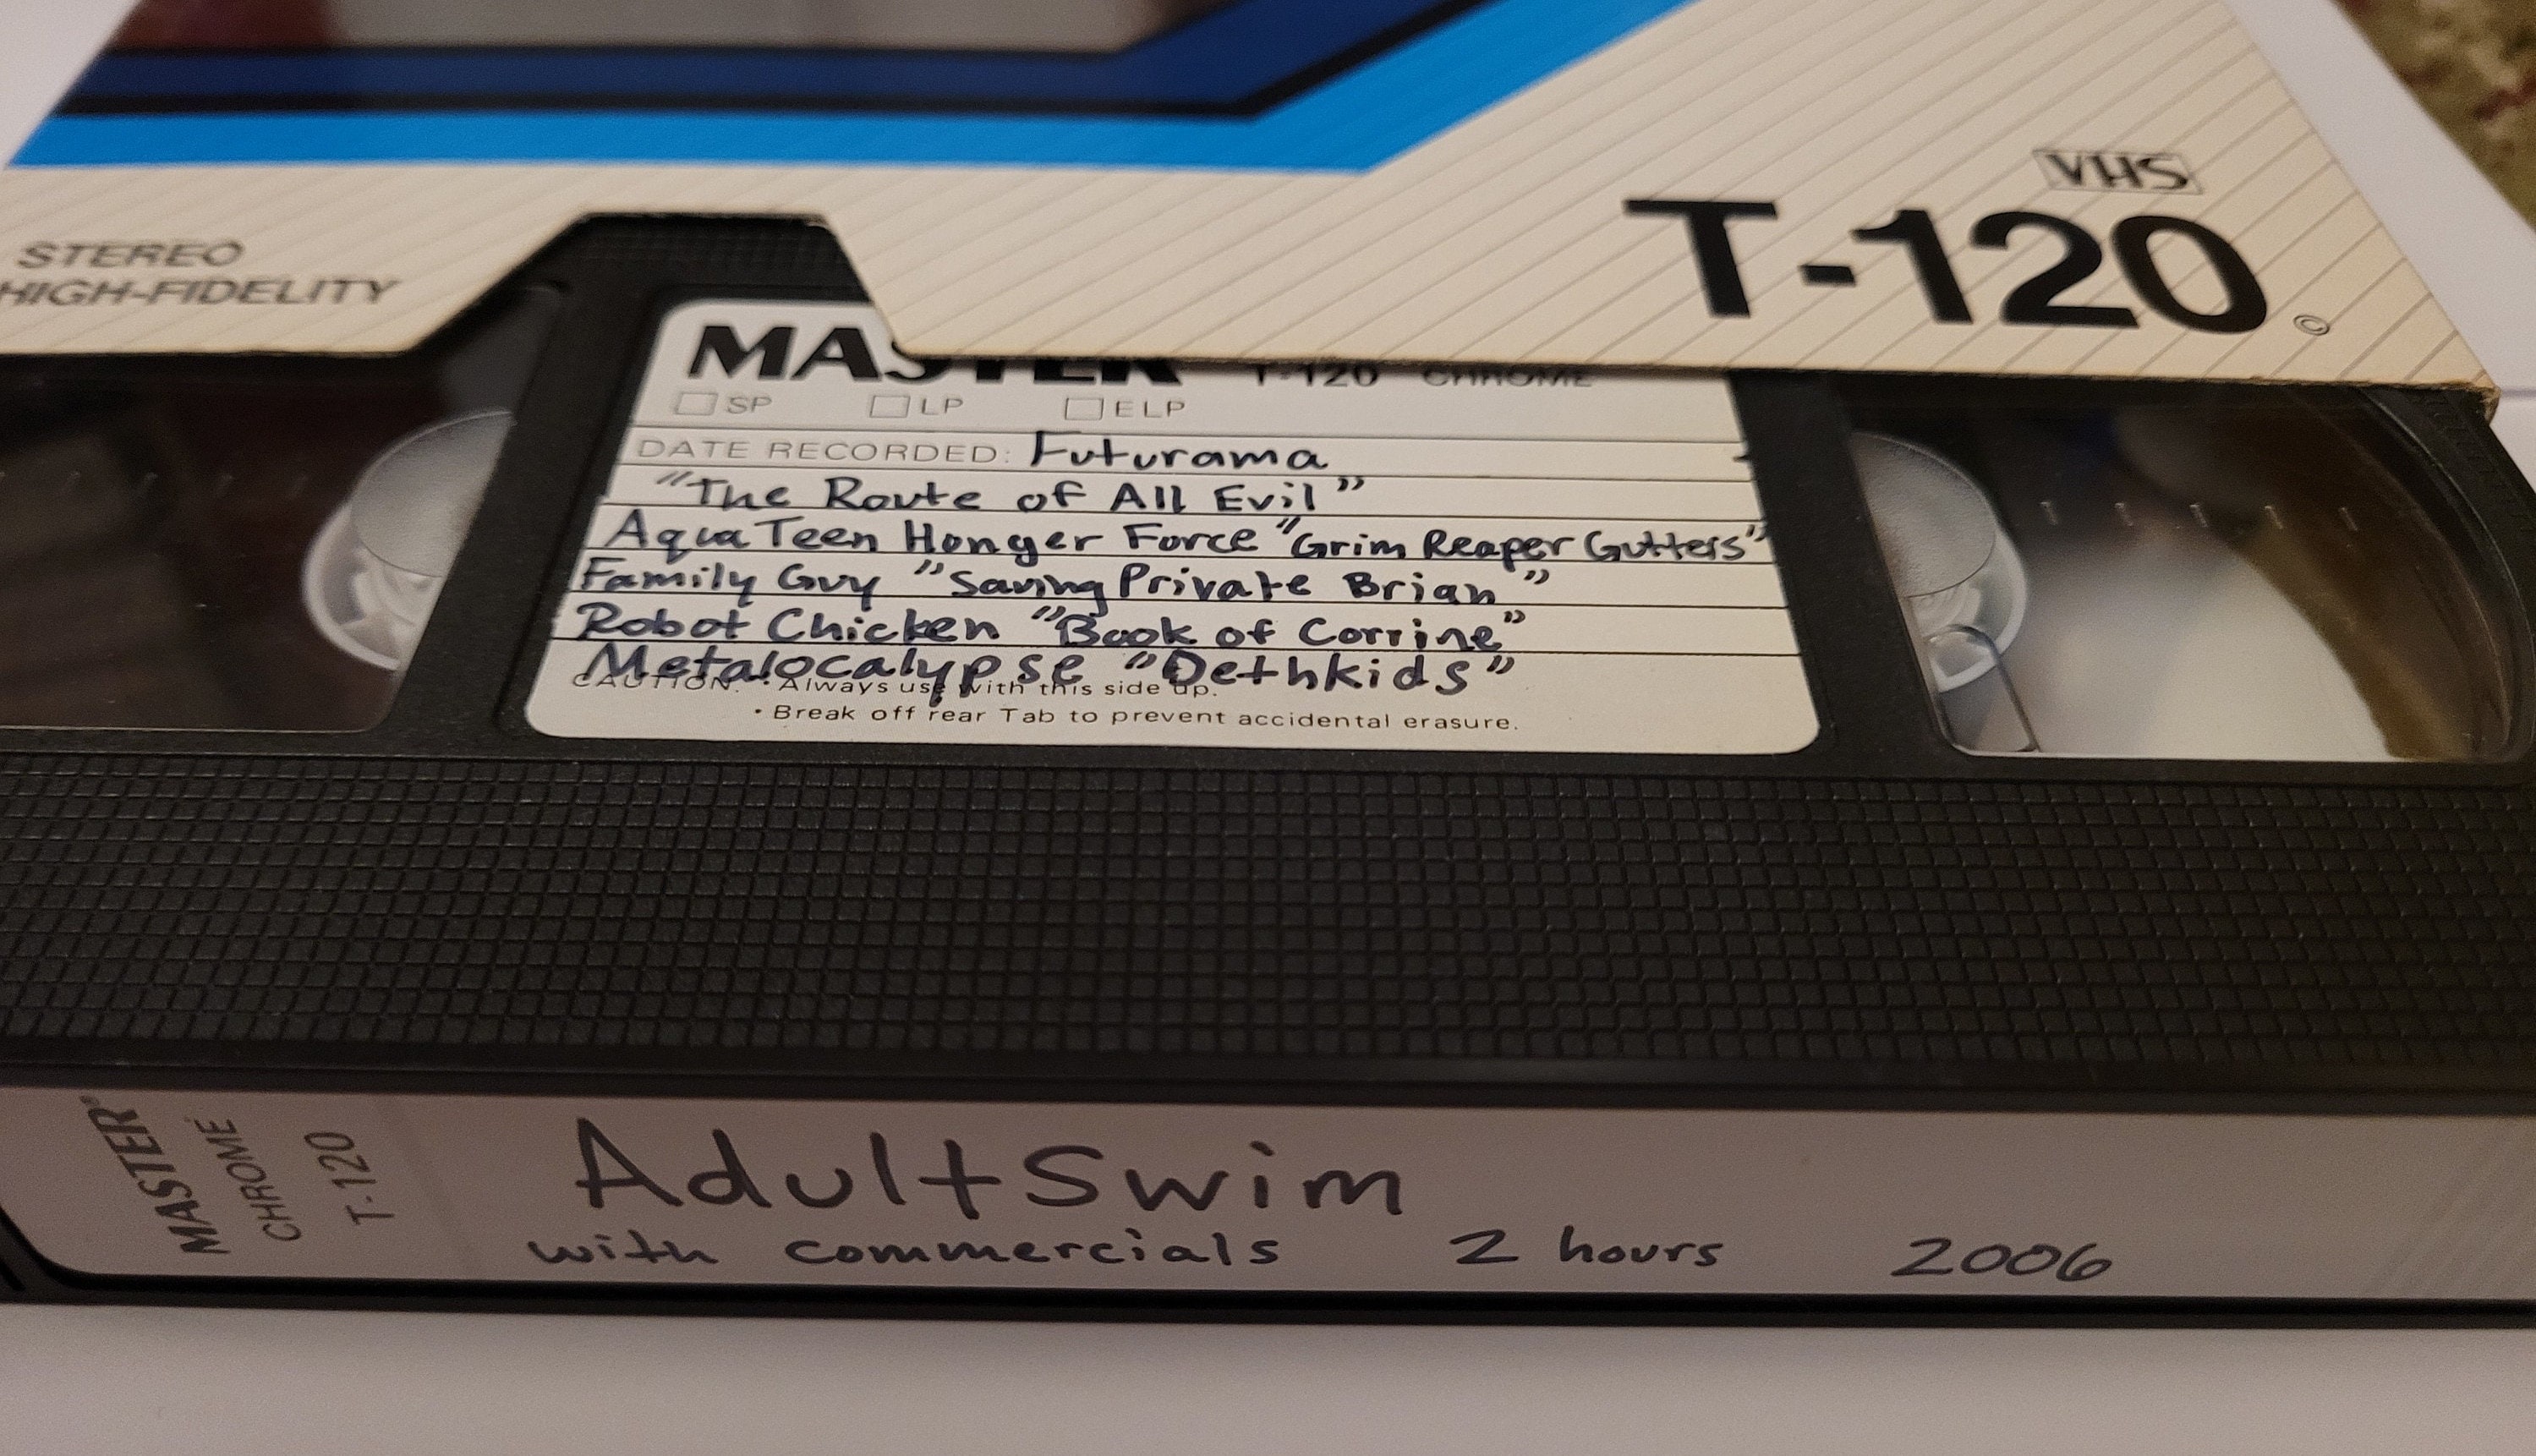 VHS
T-120 ©
STEREO
HIGH-FIDELITY
MASTER T-120 CHROME
SP LP ELP
DATE RECORDED: Futurama
"The Route of All Evil"
Aqua Teen Honger Force "Grim Reaper Gutters"
Family Guy "Saving Private Brian"
Robot Chicken "Book of Corrine"
Metalocalypse "Dethkids"
CAUTION: • Always use with this side up.
• Break off rear Tab to prevent accidental erasure.
MASTER
CHROME
T-120
Adult Swim
with commercials 2 hours 2006